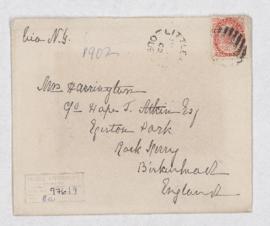 via N.Y.
1902
LITTLE
Mrs Harrington
c/o Hope T. Atkin Esq
Egerton Park
Rock Ferry
Birkenhead
England
97619